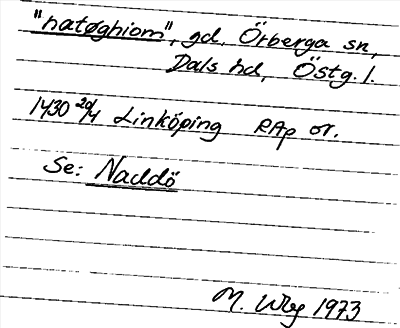 "natøghiom", gd, Örberga sn,
Dals hd, Östg. l.
1430 20/4 Linköping RAp or.
Se: Naddö
M. Wbg 1973